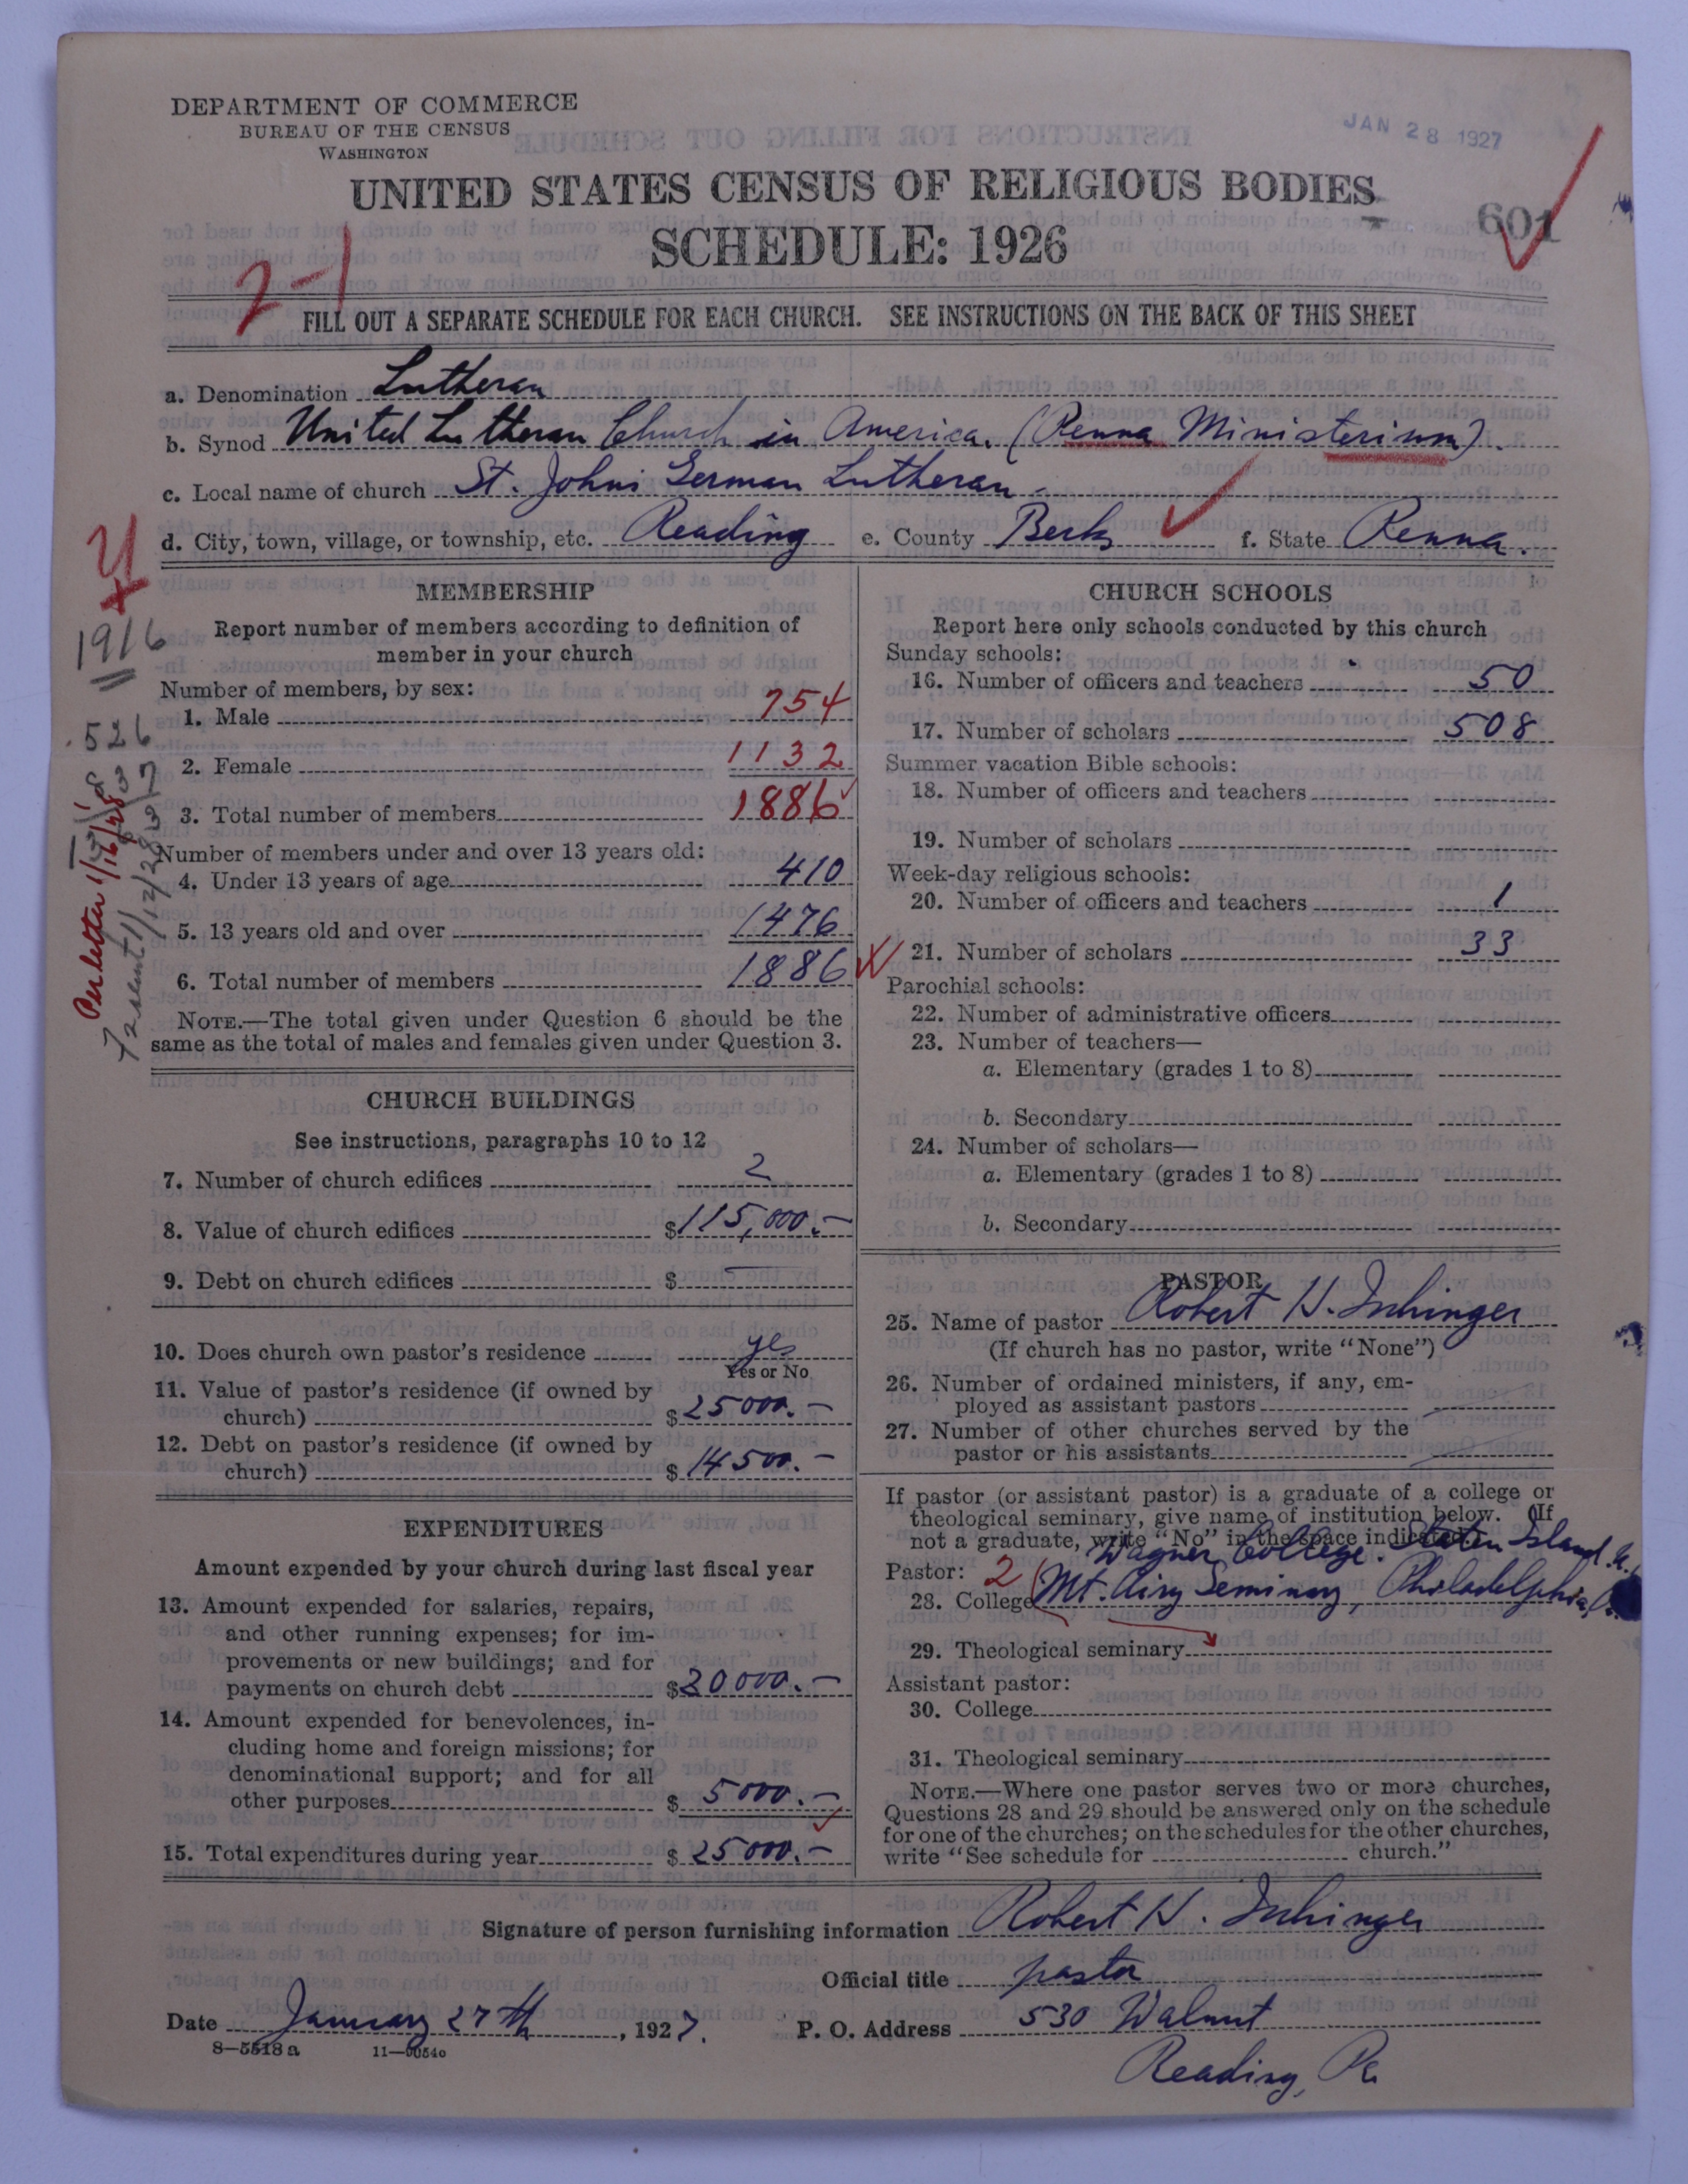 DEPARTMENT OF COMMERCE
BUREAU OF THE CENSUS
WASHINGTON
JAN 28 1927
UNITED STATES CENSUS OF RELIGIOUS BODIES
SCHEDULE: 1926
601
2-1
FILL OUT A SEPARATE SCHEDULE FOR EACH CHURCH. SEE INSTRUCTIONS ON THE BACK OF THIS SHEET
a. Denomination Lutheran
b. Synod United Lutheran Church in America. (Penna Ministerium).
c. Local name of church St. Johns German Lutheran
d. City, town, village, or township, etc. Reading e. County Berks f. State Penna.
1916
526
Per letter 1/16/28
MEMBERSHIP
Report number of members according to definition of
member in your church
Number of members, by sex:
1. Male 754
2. Female 1132
3. Total number of members 1886
Number of members under and over 13 years old:
4. Under 13 years of age 410
5. 13 years old and over 1476
6. Total number of members 1886
NOTE.—The total given under Question 6 should be the
same as the total of males and females given under Question 3.
CHURCH BUILDINGS
See instructions, paragraphs 10 to 12
7. Number of church edifices 2
8. Value of church edifices $115,000.—
9. Debt on church edifices $ —
10. Does church own pastor's residence yes
Yes or No
11. Value of pastor's residence (if owned by
church) $25000.—
12. Debt on pastor's residence (if owned by
church) $14500.—
EXPENDITURES
Amount expended by your church during last fiscal year
13. Amount expended for salaries, repairs,
and other running expenses; for im-
provements or new buildings; and for
payments on church debt $20000.—
14. Amount expended for benevolences, in-
cluding home and foreign missions; for
denominational support; and for all
other purposes $5000.—
15. Total expenditures during year $25000.—
CHURCH SCHOOLS
Report here only schools conducted by this church
Sunday schools:
16. Number of officers and teachers 50
17. Number of scholars 508
Summer vacation Bible schools:
18. Number of officers and teachers
19. Number of scholars
Week-day religious schools:
20. Number of officers and teachers 1
21. Number of scholars 33
Parochial schools:
22. Number of administrative officers
23. Number of teachers—
a. Elementary (grades 1 to 8)
b. Secondary
24. Number of scholars—
a. Elementary (grades 1 to 8)
b. Secondary
PASTOR
25. Name of pastor Robert H. Ischinger
(If church has no pastor, write "None")
26. Number of ordained ministers, if any, em-
ployed as assistant pastors
27. Number of other churches served by the
pastor or his assistants
If pastor (or assistant pastor) is a graduate of a college or
theological seminary, give name of institution below. (If
not a graduate, write "No" in the space indicated.)
Wagner College. Staten Island. N.
Pastor: 2
28. College Mt. Airy Seminary, Philadelphia,
29. Theological seminary
Assistant pastor:
30. College
31. Theological seminary
NOTE.—Where one pastor serves two or more churches,
Questions 28 and 29 should be answered only on the schedule
for one of the churches; on the schedules for the other churches,
write "See schedule for church."
Signature of person furnishing information Robert H. Ischinger
Official title pastor
Date January 27th, 1927. P. O. Address 530 Walnut
8—5518a 11—9054o
Reading, Pa